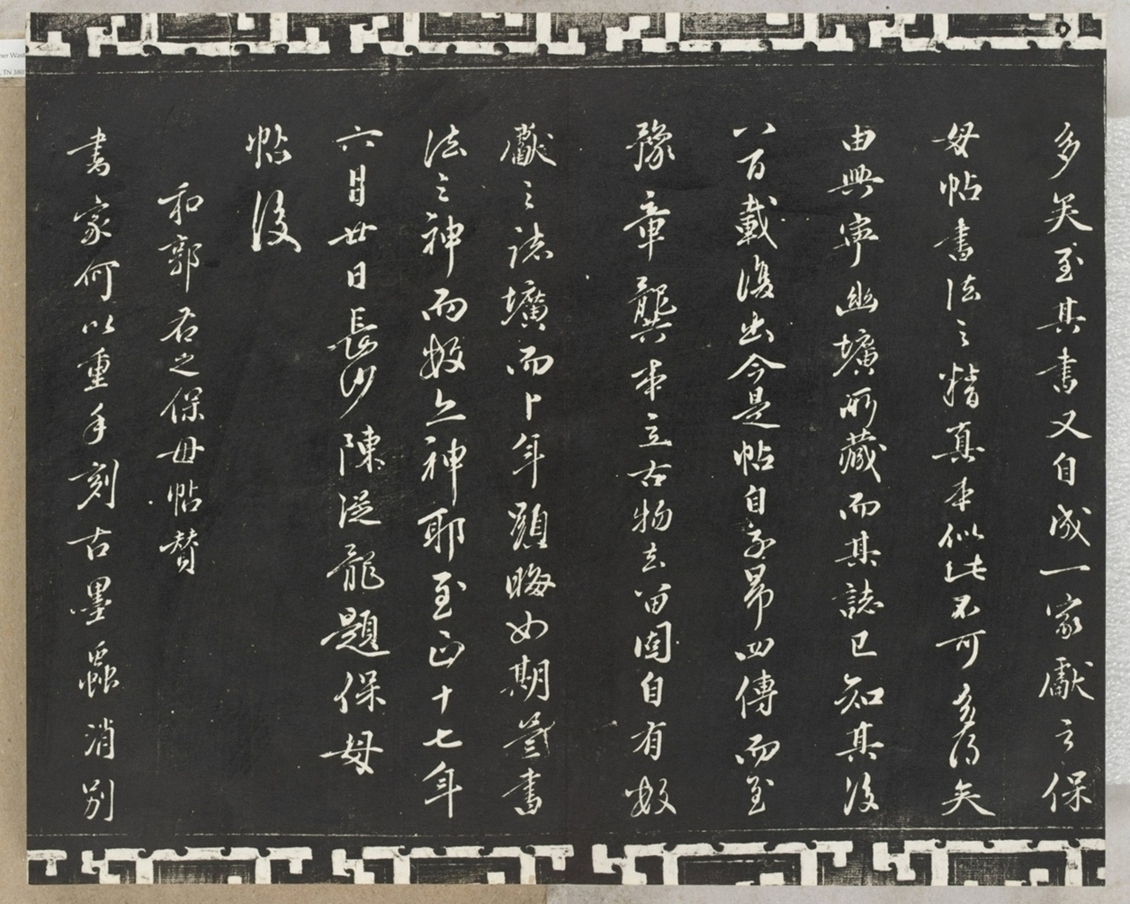 多矣至其書又自成一家獻之保
母帖書法之精真本似此不可多得矣
由興寧幽壙所藏而其誌已知其後
八百載復出今是帖自子昂四傳而至
豫章龔本立古物去留固自有數
獻之誌壙而卜年顯晦如期豈書
法之神而數亦神耶至正十七年
六月廿日長沙陳從龍題保母
帖後
和郭右之保母帖贊
書家何以重手刻古墨蟲消別